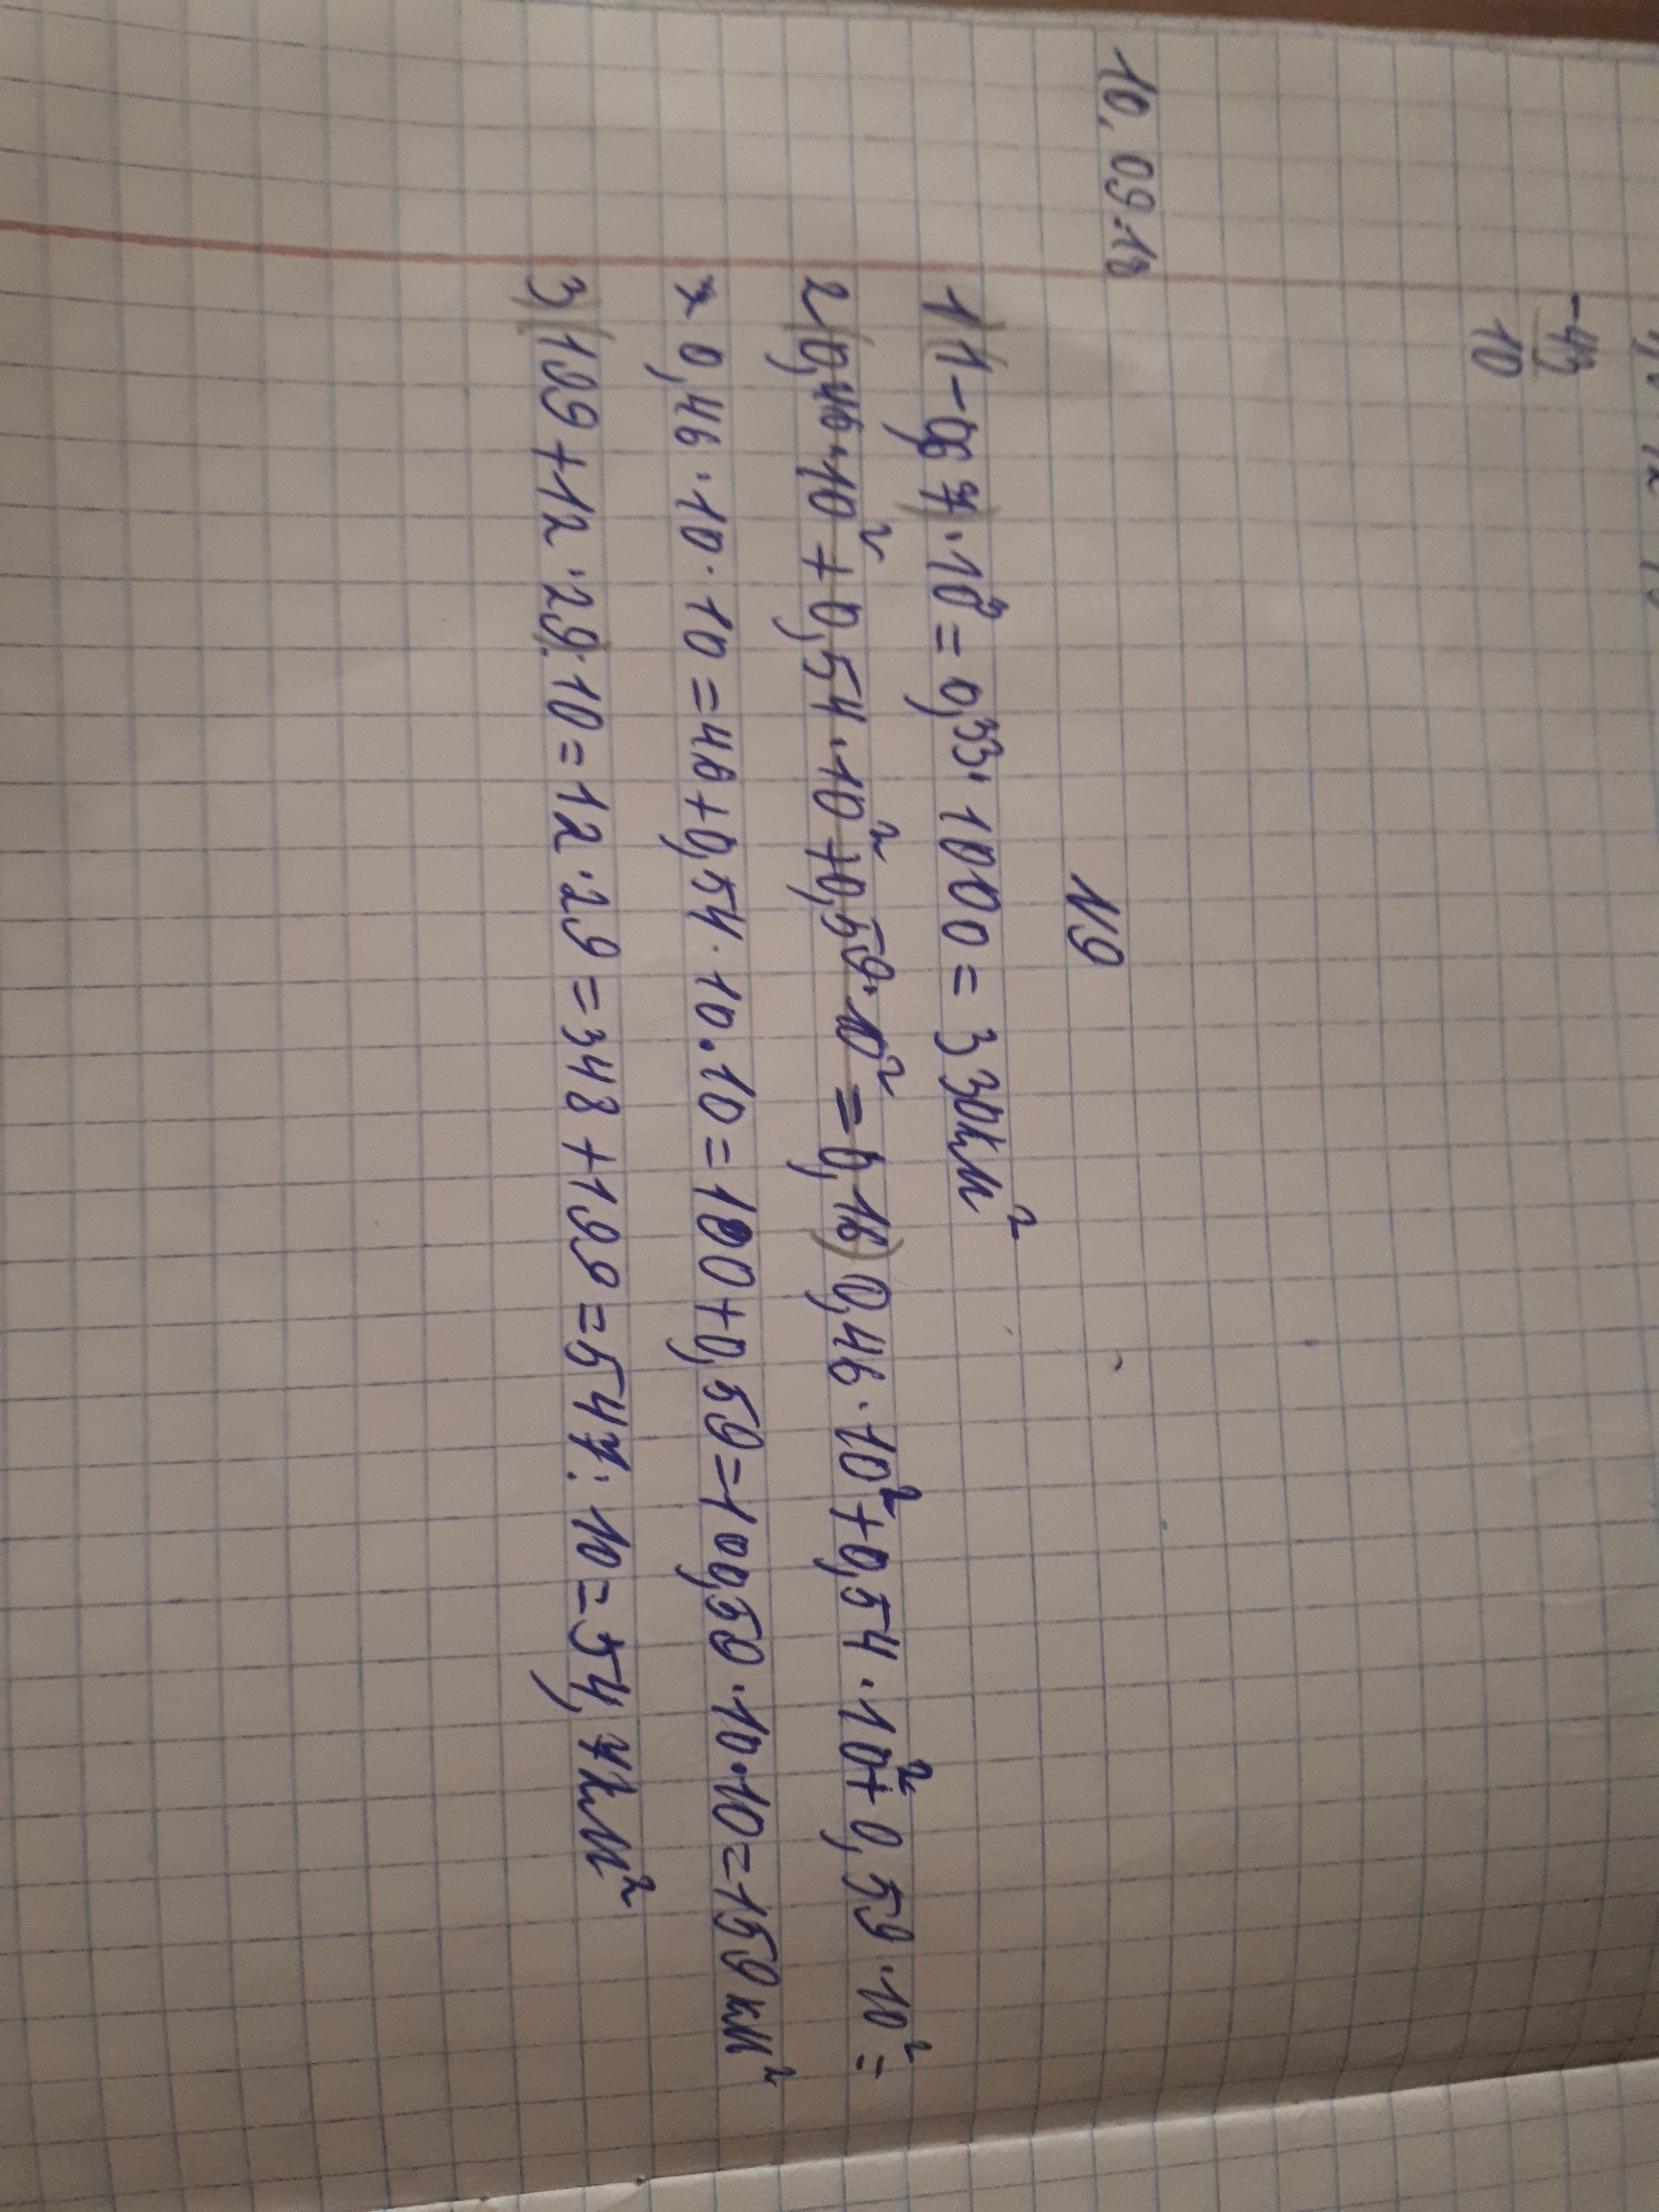 -43
10
10.09.18
№9
1)(1-0,67)·10³=0,33·1000=330км²
2)(0,46·10²+0,54·10²+0,59·10²=0,16)0,46·10²+0,54·10²+0,59·10²=
0,46·10·10=46+0,54·10·10=100+0,59=100,59·10·10=159км²
3)(199+12·29):10=12·29=348+199=547:10=54,7км²